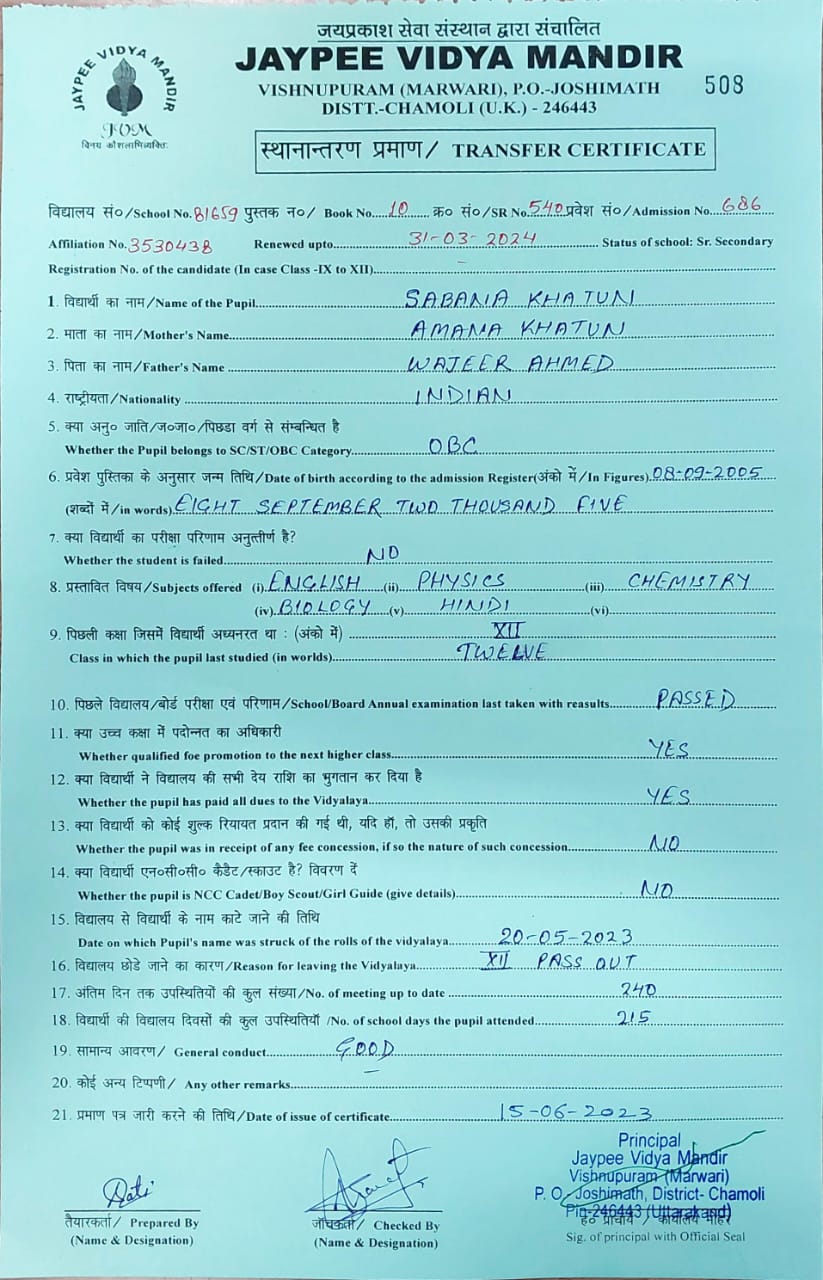 जयप्रकाश सेवा संस्थान द्वारा संचालित
JAYPEE VIDYA MANDIR
JAYPEE VIDYA MANDIR
JVM
विनय कौशलाभिव्यक्तिः
VISHNUPURAM (MARWARI), P.O.-JOSHIMATH 508
DISTT.-CHAMOLI (U.K.) - 246443
स्थानान्तरण प्रमाण/ TRANSFER CERTIFICATE
विद्यालय सं०/School No. 81659 पुस्तक न०/ Book No. 10 क्र० सं०/SR No. 540 प्रवेश सं०/Admission No. 686
Affiliation No. 3530438 Renewed upto 31-03-2024 Status of school: Sr. Secondary
Registration No. of the candidate (In case Class -IX to XII) –
1. विद्यार्थी का नाम/Name of the Pupil SABANA KHATUN
2. माता का नाम/Mother's Name AMANA KHATUN
3. पिता का नाम/Father's Name WAJEER AHMED
4. राष्ट्रीयता/Nationality INDIAN
5. क्या अनु० जाति/ज०जा०/पिछडा वर्ग से संम्बन्धित है
Whether the Pupil belongs to SC/ST/OBC Category OBC
6. प्रवेश पुस्तिका के अनुसार जन्म तिथि/Date of birth according to the admission Register(अंको में/In Figures) 08-09-2005
(शब्दों में/in words) EIGHT SEPTEMBER TWO THOUSAND FIVE
7. क्या विद्यार्थी का परीक्षा परिणाम अनुत्तीर्ण है?
Whether the student is failed NO
8. प्रस्तावित विषय/Subjects offered (i) ENGLISH (ii) PHYSICS (iii) CHEMISTRY
(iv) BIOLOGY (v) HINDI (vi)
9. पिछली कक्षा जिसमें विद्यार्थी अध्यनरत था : (अंको में) XII
Class in which the pupil last studied (in worlds) TWELVE
10. पिछले विद्यालय/बोर्ड परीक्षा एवं परिणाम/School/Board Annual examination last taken with reasults PASSED
11. क्या उच्च कक्षा में पदोन्नत का अधिकारी
Whether qualified foe promotion to the next higher class YES
12. क्या विद्यार्थी ने विद्यालय की सभी देय राशि का भुगतान कर दिया है
Whether the pupil has paid all dues to the Vidyalaya YES
13. क्या विद्यार्थी को कोई शुल्क रियायत प्रदान की गई थी, यदि हाँ, तो उसकी प्रकृति
Whether the pupil was in receipt of any fee concession, if so the nature of such concession NO
14. क्या विद्यार्थी एन०सी०सी० कैडैट/स्काउट है? विवरण दें
Whether the pupil is NCC Cadet/Boy Scout/Girl Guide (give details) NO
15. विद्यालय से विद्यार्थी के नाम काटे जाने की तिथि
Date on which Pupil's name was struck of the rolls of the vidyalaya 20-05-2023
16. विद्यालय छोडे जाने का कारण/Reason for leaving the Vidyalaya XII PASS OUT
17. अंतिम दिन तक उपस्थितियों की कुल संख्या/No. of meeting up to date 240
18. विद्यार्थी की विद्यालय दिवसों की कुल उपस्थितियाँ /No. of school days the pupil attended 215
19. सामान्य आवरण/ General conduct GOOD
20. कोई अन्य टिप्पणी/ Any other remarks –
21. प्रमाण पत्र जारी करने की तिथि/Date of issue of certificate 15-06-2023
Principal
Jaypee Vidya Mandir
Vishnupuram (Marwari)
P. O.- Joshimath, District- Chamoli
Pin-246443 (Uttarakhand)
तैयारकर्ता/ Prepared By जाँचकर्ता/ Checked By ह० प्राचार्य / कार्यालय मोहर
(Name & Designation) (Name & Designation) Sig. of principal with Official Seal